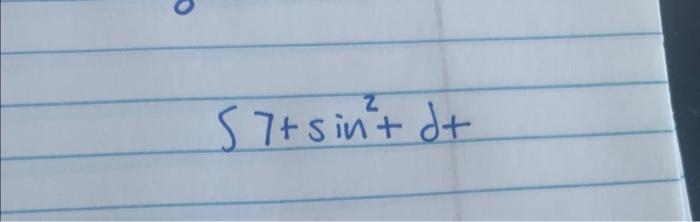 ∫ 7t sin²t dt